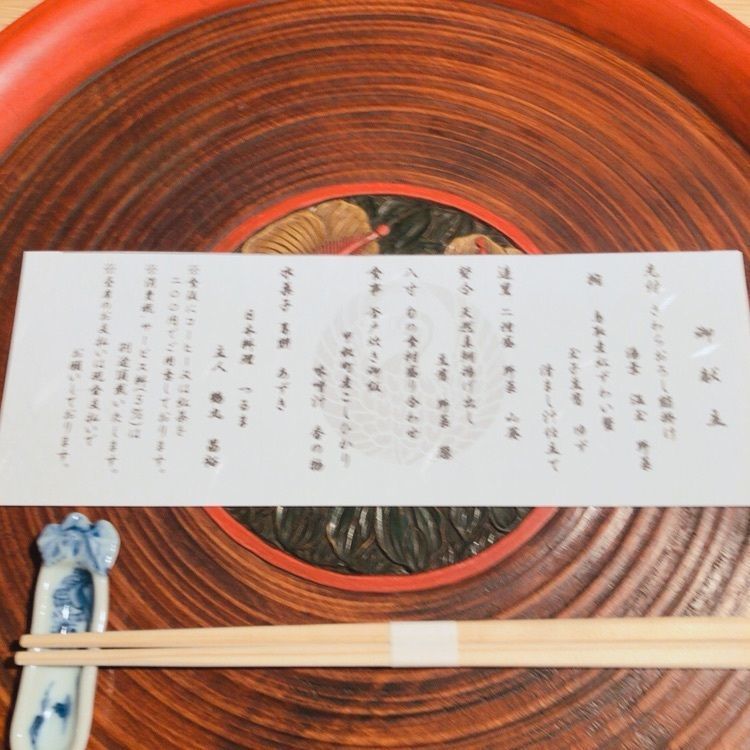 御献立
先付 さわらおろし餡掛け
海老 温玉 野菜
椀 鳥取産松葉かに
玉子豆腐 ゆず
清まし汁仕立て
造里 二種盛 野菜 山葵
聚合 天然真鯛揚げ出し
生姜 野菜 葱
八寸 旬の食材盛り合わせ
食事 今炊き御飯
こしひかり
味噌汁 香の物
水菓子 葛餅 あずき
日本料理 つるま
主人
※食後にコーヒー又は紅茶を
二〇〇円でご用意しております。
※消費税 サービス料(5%)は
別途頂戴いたします。
※お昼のお支払いは現金支払いで
お願いしております。